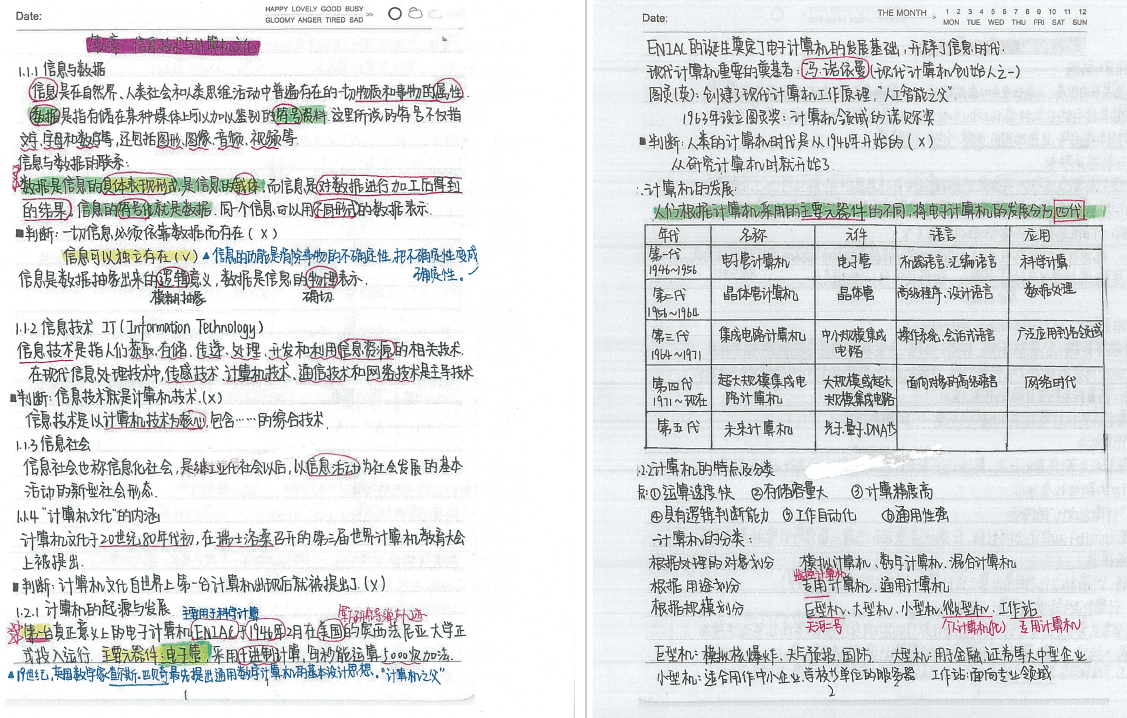 Date:
HAPPY LOVELY GOOD BUSY
GLOOMY ANGER TIRED SAD >>
第一章 信息技术与计算机文化
1.1.1 信息与数据
信息是在自然界、人类社会和人类思维活动中普遍存在的一切物质和事物的属性.
数据是指存储在某种媒体上可以加以鉴别的符号资料. 这里所说的符号不仅指
文字、字母和数字等, 还包括图形、图像、音频、视频等.
信息与数据的联系:
数据是信息的具体表现形式, 是信息的载体. 而信息是对数据进行加工后得到
的结果, 信息的符号化就是数据. 同一个信息可以用不同形式的数据表示.
■判断: 一切信息必须依靠数据而存在 (×)
信息可以独立存在 (√) ▲信息的功能是消除事物的不确定性, 把不确定性变成
确定性.
信息是数据抽象出来的逻辑意义, 数据是信息的物理表示.
模糊抽象 确切
1.1.2 信息技术 IT (Information Technology)
信息技术是指人们获取、存储、传递、处理、开发和利用信息资源的相关技术.
在现代信息处理技术中, 传感技术、计算机技术、通信技术和网络技术是主导技术
■判断: 信息技术就是计算机技术. (×)
信息技术是以计算机技术为核心, 包含……的综合技术.
1.1.3 信息社会
信息社会也称信息化社会, 是继工业化社会以后, 以信息活动为社会发展的基本
活动的新型社会形态.
1.1.4 "计算机文化"的内涵
计算机文化于20世纪80年代初, 在瑞士洛桑召开的第三届世界计算机教育大会
上被提出.
■判断: 计算机文化自世界上第一台计算机出现后就被提出了 (×)
1.2.1 计算机的起源与发展 主要用于科学计算
第一台真正意义上的电子计算机ENIAC于1946年2月在美国的宾西法尼亚大学正
式投入运行. 主要元器件: 电子管, 采用十进制计算, 每秒能运算5000次加法.
▲19世纪, 英国数学家查尔斯·巴贝奇最先提出通用数字计算机的基本设计思想. "计算机之父"
1
Date:
THE MONTH > 1 2 3 4 5 6 7 8 9 10 11 12
MON TUE WES THU FRI SAT SUN
ENIAC的诞生奠定了电子计算机的发展基础, 开辟了信息时代.
现代计算机重要的奠基者: 冯·诺依曼 (现代计算机创始人之一)
图灵(英): 创建了现代计算机工作原理, "人工智能之父"
设立图灵奖: 计算机领域的诺贝尔奖
■判断: 人类的计算机时代是从1946年开始的 (×)
从研究计算机时就开始了.
二.计算机的发展:
人们根据计算机采用的主要元器件的不同, 将电子计算机的发展分为四代.
年代 名称 元件 语言 应用
第一代 1946~1956 电子管计算机 电子管 机器语言、汇编语言 科学计算
第二代 1956~1964 晶体管计算机 晶体管 高级程序设计语言 数据处理
第三代 1964~1971 集成电路计算机 中小规模集成电路 操作系统、会话式语言 广泛应用到各领域
第四代 1971~现在 超大规模集成电路计算机 大规模或超大规模集成电路 面向对象的高级语言 网络时代
第五代 未来计算机 光子、量子、DNA等
1.2.2计算机的特点及分类
点: ①运算速度快 ②存储容量大 ③计算精度高
④具有逻辑判断能力 ⑤工作自动化 ⑥通用性强
一计算机的分类:
根据处理的对象划分 模拟计算机、数字计算机、混合计算机
根据用途划分 专用计算机、通用计算机
根据规模划分 巨型机、大型机、小型机、微型机、工作站
天河二号 个人计算机(PC) 专用计算机
巨型机: 模拟核爆炸、天气预报、国防 大型机: 用于金融、证券等大中型企业
小型机: 适合用作中小企业、学校等单位的服务器 工作站: 面向专业领域
2